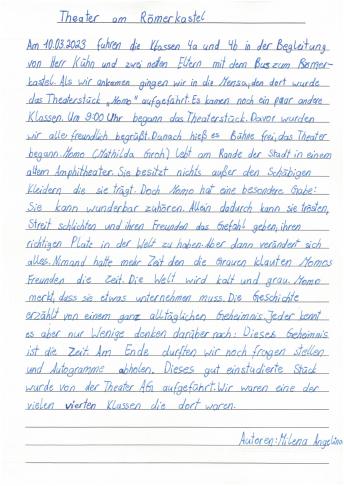 Theater am Römerkastel
Am 10.03.2023 fuhren die Klassen 4a und 4b in der Begleitung
von Herr Kühn und zwei netten Eltern mit dem Bus zum Römer-
kastel. Als wir ankamen gingen wir in die Mensa, den dort wurde
das Theaterstück „Momo" aufgeführt. Es kamen noch ein paar andere
Klassen. Um 9:00 Uhr begann das Theaterstück. Davor wurden
wir alle freundlich begrüßt. Danach hieß es Bühne frei, das Theater
begann. Momo (Mathilda Groh) lebt am Rande der Stadt in einem
altem Amphitheater. Sie besitzt nichts außer den Schäbigen
Kleidern die sie trägt. Doch Momo hat eine besondere Gabe:
Sie kann wunderbar zuhören. Allein dadurch kann sie trösten,
Streit schlichten und ihren Freunden das Gefühl geben, ihren
richtigen Platz in der Welt zu haben. Aber dann verändert sich
alles. Nimand hatte mehr Zeit den die Grauen klauten Momos
Freunden die Zeit. Die Welt wird kalt und grau. Momo
merkt, dass sie etwas unternehmen muss. Die Geschichte
erzählt von einem ganz alltäglichen Geheimnis. Jeder kennt
es aber nur Wenige denken darüber nach: Dieses Geheimnis
ist die Zeit. Am Ende durften wir noch fragen stellen
und Autogramme abholen. Dieses gut einstudierte Stück
wurde von der Theater AG aufgeführt. Wir waren eine der
vielen vierten Klassen die dort waren.
Autoren: Milena Angelina